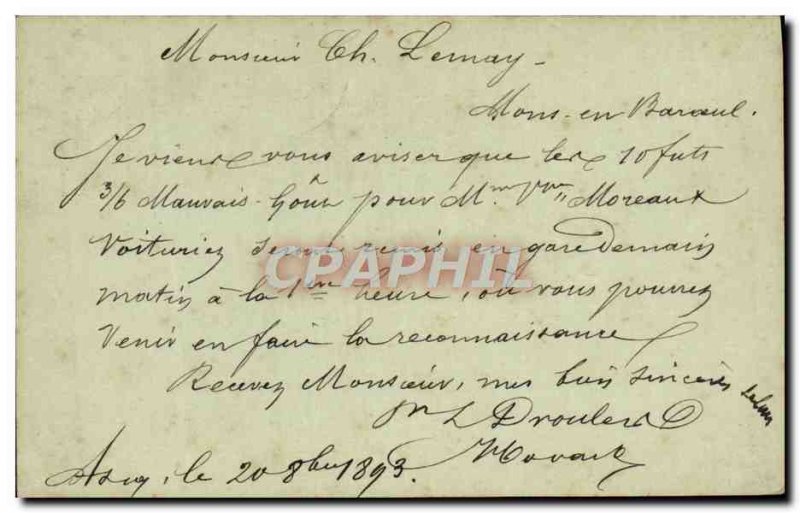 Monsieur Ch. Lemay -
Mons-en-Barœul.
Je viens vous aviser que les 10 futs
3/6 Mauvais-Goût pour Mme Vve Moreaux
Voiturier seront remis en gare demain
matin à la 1ère heure, où vous pourrez
Venir en faire la reconnaissance
Recevez Monsieur, mes bien sincères salut
Pr L Droulers
Ascq, le 20 8bre 1893.
CPAPHIL